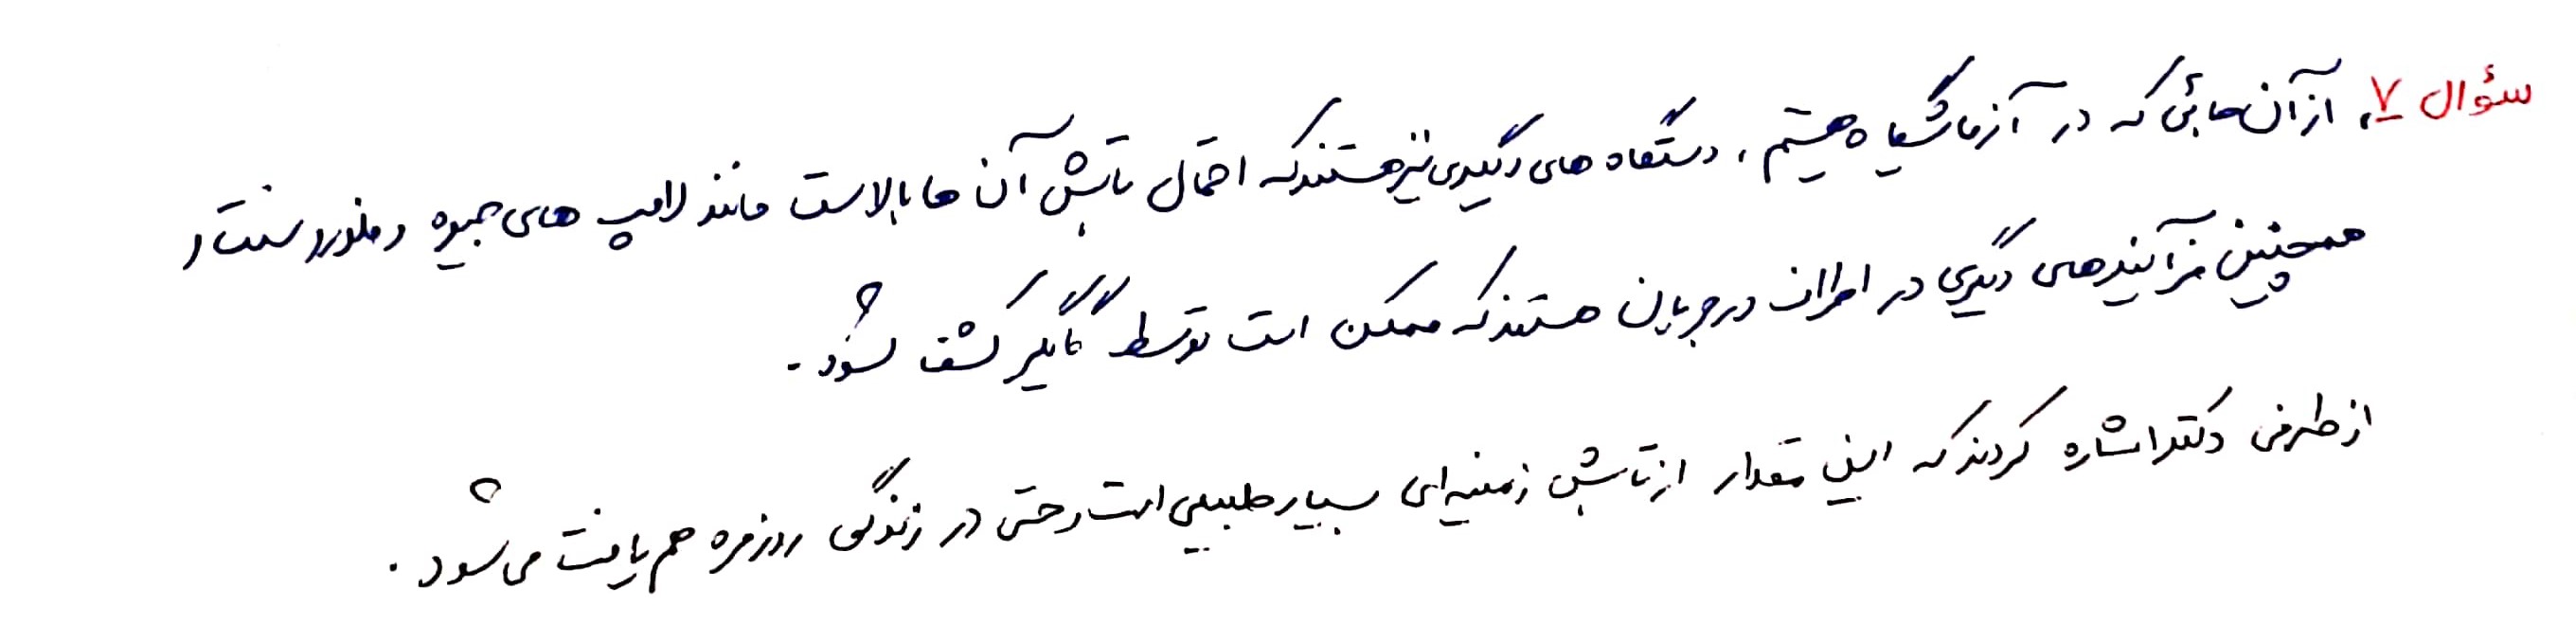 سؤال ۷، از آن جائی که در آزمایشگاه هستیم، دستگاه های دیگری نیز هستند که احتمال تابش آن ها بالاست مانند لامپ های جیوه و فلورسنت و
همچنین فرآیندهای دیگری در اطراف در جریان هستند که ممکن است توسط گایگر کشف شود.
از طرفی دکتر اشاره کردند که این مقدار از تابش زمینه ای بسیار طبیعی است و حتی در زندگی روزمره هم یافت می شود.